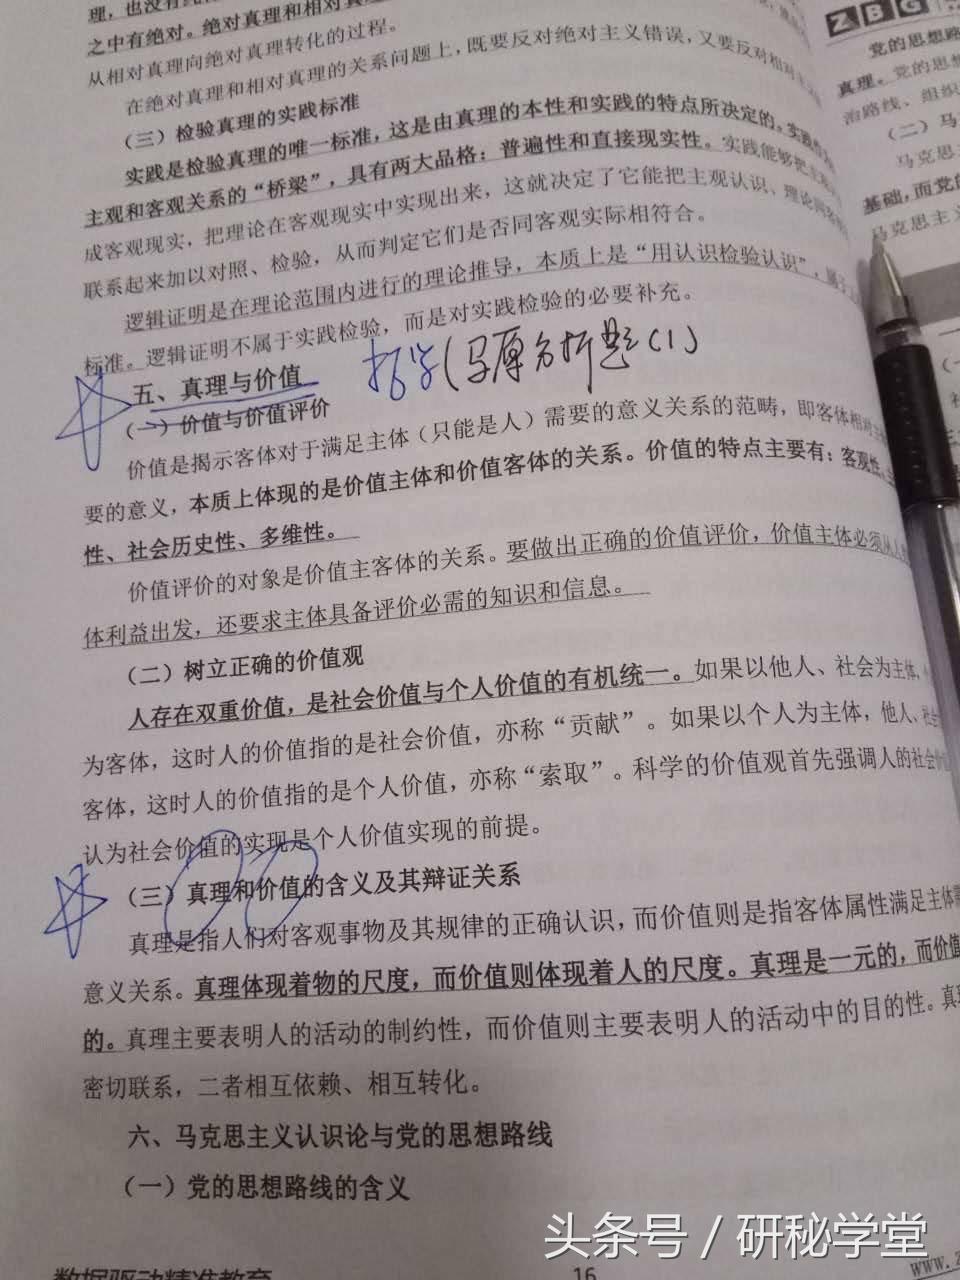 理，也没有
之中有绝对。绝对真理和相对真理
从相对真理向绝对真理转化的过程。
在绝对真理和相对真理的关系问题上，既要反对绝对主义错误，又要反对相对主义
（三）检验真理的实践标准
实践是检验真理的唯一标准，这是由真理的本性和实践的特点所决定的。实践作为
主观和客观关系的“桥梁”，具有两大品格：普遍性和直接现实性。实践能够把主观
成客观现实，把理论在客观现实中实现出来，这就决定了它能把主观认识、理论同客观
联系起来加以对照、检验，从而判定它们是否同客观实际相符合。
逻辑证明是在理论范围内进行的理论推导，本质上是“用认识检验认识”，属于
标准。逻辑证明不属于实践检验，而是对实践检验的必要补充。
五、真理与价值
（马原分析题（1）
（一）价值与价值评价
价值是揭示客体对于满足主体（只能是人）需要的意义关系的范畴，即客体相对主
要的意义，本质上体现的是价值主体和价值客体的关系。价值的特点主要有：客观性、主
性、社会历史性、多维性。
价值评价的对象是价值主客体的关系。要做出正确的价值评价，价值主体必须从人
体利益出发，还要求主体具备评价必需的知识和信息。
（二）树立正确的价值观
人存在双重价值，是社会价值与个人价值的有机统一。如果以他人、社会为主体，
为客体，这时人的价值指的是社会价值，亦称“贡献”。如果以个人为主体，他人、社会
客体，这时人的价值指的是个人价值，亦称“索取”。科学的价值观首先强调人的社会价值
认为社会价值的实现是个人价值实现的前提。
（三）真理和价值的含义及其辩证关系
真理是指人们对客观事物及其规律的正确认识，而价值则是指客体属性满足主体需
意义关系。真理体现着物的尺度，而价值则体现着人的尺度。真理是一元的，而价值
的。真理主要表明人的活动的制约性，而价值则主要表明人的活动中的目的性。真
密切联系，二者相互依赖、相互转化。
六、马克思主义认识论与党的思想路线
（一）党的思想路线的含义
数据驱动精准教育
16
ZBG
党的思想路
真理。党的思想
治路线、组织
（二）马
马克思
基础，而党的
马克思主义
www.z
头条号 / 研秘学堂